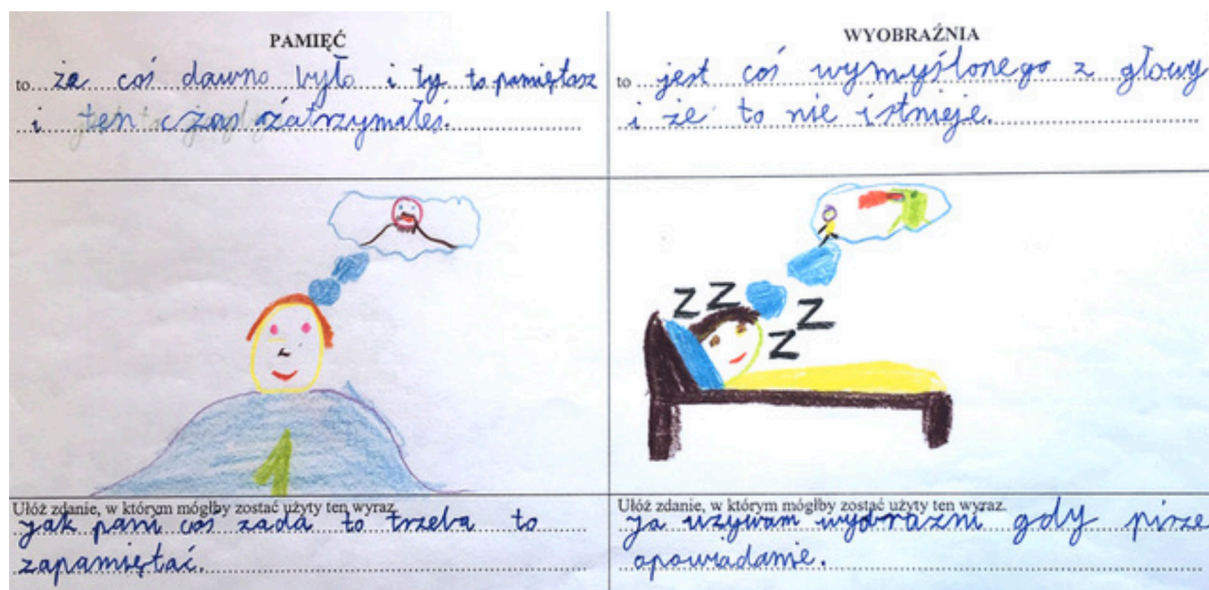 PAMIĘĆ
to że coś dawno było i ty to pamiętasz
i ten czas zatrzymałeś.
Ułóż zdanie, w którym mógłby zostać użyty ten wyraz.
jak pani coś zada to trzeba to
zapamiętać.
WYOBRAŹNIA
to jest coś wymyślonego z głowy
i że to nie istnieje.
Z Z Z Z
Ułóż zdanie, w którym mógłby zostać użyty ten wyraz.
Ja używam wyobraźni gdy pisze
opowiadanie.